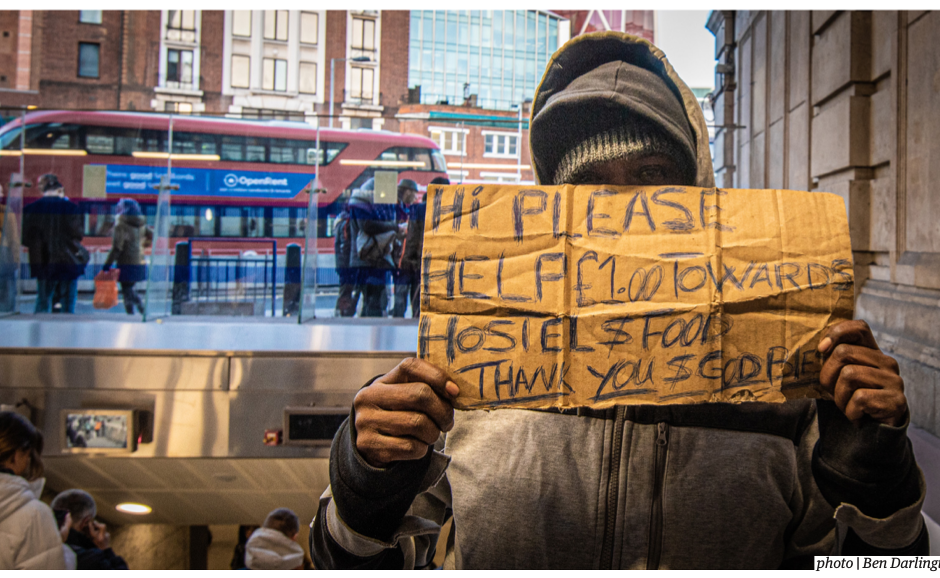 OpenRent
HI PLEASE
HELP £1.00 TOWARDS
HOSTEL $ FOOD
THANK YOU $ GODBLE
photo | Ben Darling